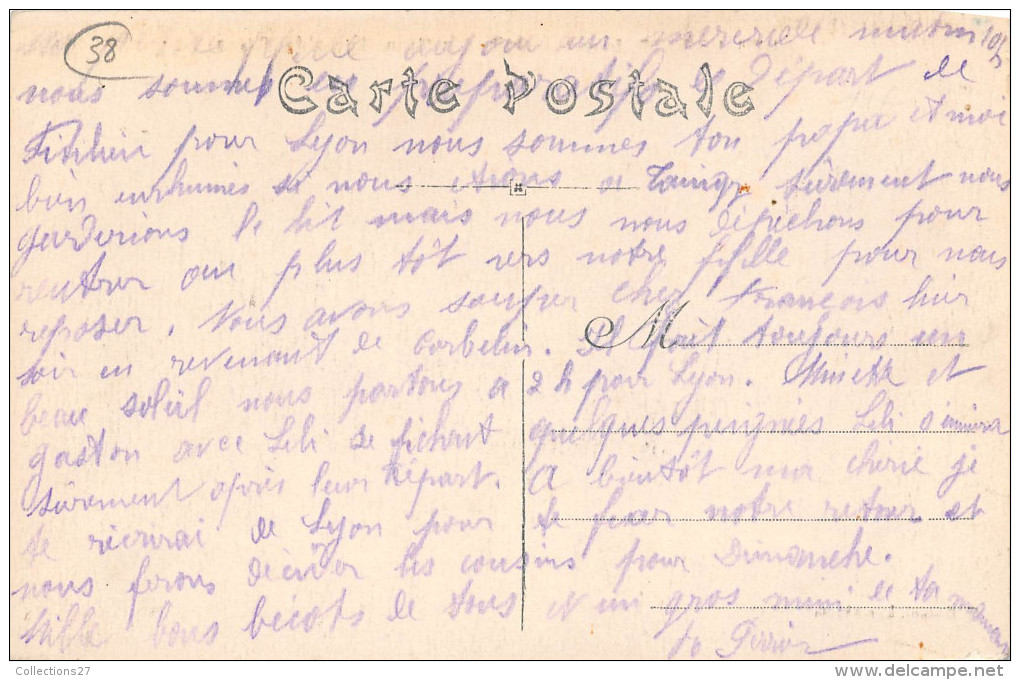 38
mercredi matin 10h
Carte Postale
nous sommes en préparatifs de départ de
pour Lyon nous sommes ton papa et moi
bien enrhumés si nous étions a sûrement nous
garderions le lit mais nous nous dépêchons pour
rentrer au plus tôt vers notre fifille pour nous
reposer. Nous avons souper chez François hier
M
soir en revenant de Corbelin. Il fait toujours un
beau soleil nous partons a 2 h pour Lyon. Minette et
gaston avec Lili se fichent quelques peignées Lili s'ennuiera
sûrement après leur départ. A bientôt ma cherie je
te récrirai de Lyon pour te fixer notre retour et
nous ferons décider les cousins pour Dimanche.
Mille bons bécots de tous et un gros mimi de ta maman
Collections27
www.delcampe.net